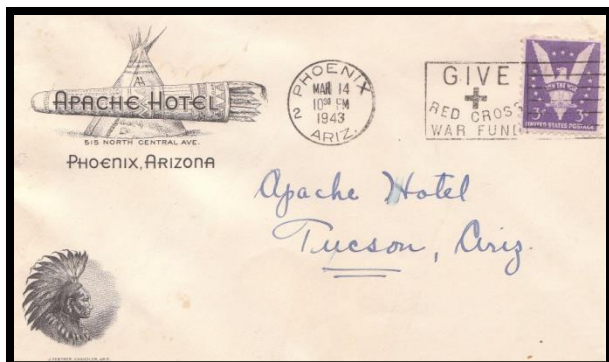 APACHE HOTEL
515 NORTH CENTRAL AVE.
PHOENIX, ARIZONA
PHOENIX
MAR 14
10 30 PM
1943
2 ARIZ.
GIVE
RED CROSS
WAR FUND
WIN THE WAR
3¢ 3¢
UNITED STATES POSTAGE
Apache Hotel
Tucson, Ariz.